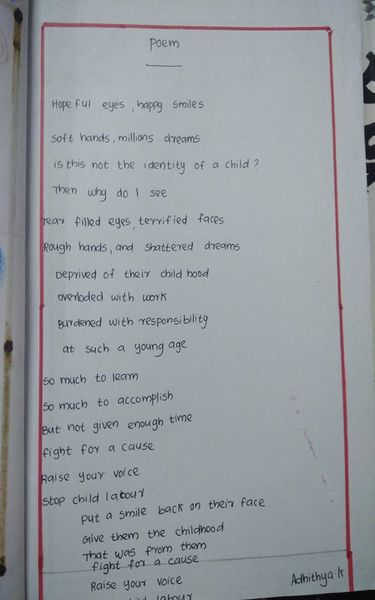 Poem
Hopeful eyes, happy smiles
soft hands, millions dreams
is this not the identity of a child?
Then why do I see
Tear filled eyes, terrified faces
Rough hands, and shattered dreams
Deprived of their child hood
overloded with work
Burdened with responsibility
at such a young age
so much to learn
so much to accomplish
But not given enough time
fight for a cause
Raise your voice
stop child labour
put a smile back on their face
Give them the childhood
That was from them
fight for a cause
Raise your voice
child labour
Adhithya k